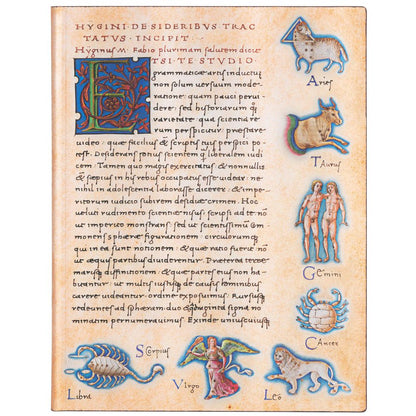 HYGINI·DE SIDERIBUS TRAC
TATUS·INCIPIT·
Hyginus M. Fabio plurimam salutem dicit
E TSI·TE STUDIO
grammaticae artis inductū
non solum versuum mode-
ratione: quam pauci pervi-
dere: sed historiarum q̄q̄
varietate qua scientia re-
rum perspicitur: praestare
video: quae facilius & scriptis tuis perspici po-
test. Desiderans potius scientem q̄ liberalem iudi-
cem. Tamen quo magis exercitatus & nonnullis
& saepius in his rebus occupatus esse videar: ne ni-
hil in adolescentia laborasse dicerer: & impe-
ritorum iudicio subirem desidiae crimen: Hoc
veluti rudimento scientiae nisus: scripsi ad te nō
ut imperito monstrans sed ut scientissimū com-
monens sphaerae figurationem circulorumq̄
qui in ea sunt notionem & quae ratio fuerit nō
ut aequis partibus dividerentur. Praeterea terrae
marisq̄ diffinitionem & quae partes eius non ha-
buantur: ut multis iustisq̄ de causis hominibus
carere videantur ordine exposuimus. Rursusq̄
redeuntes ad sphaeram duo &
nominatim pernumeravimus. Exinde uniuscuiusq̄
Aries
Taurus
Gemini
Cancer
Leo
Virgo
Scorpius
Libra